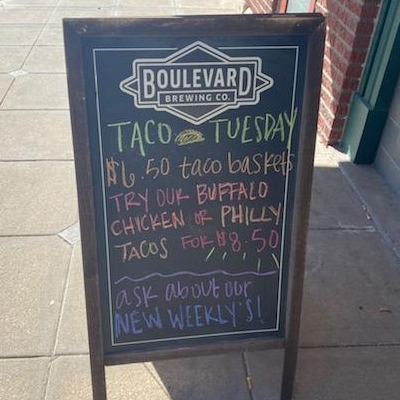 BOULEVARD
BREWING CO.
TACO TUESDAY
$6.50 taco baskets
TRY OUR BUFFALO
CHICKEN or PHILLY
TACOS FOR $8.50
ask about our
NEW WEEKLY'S!